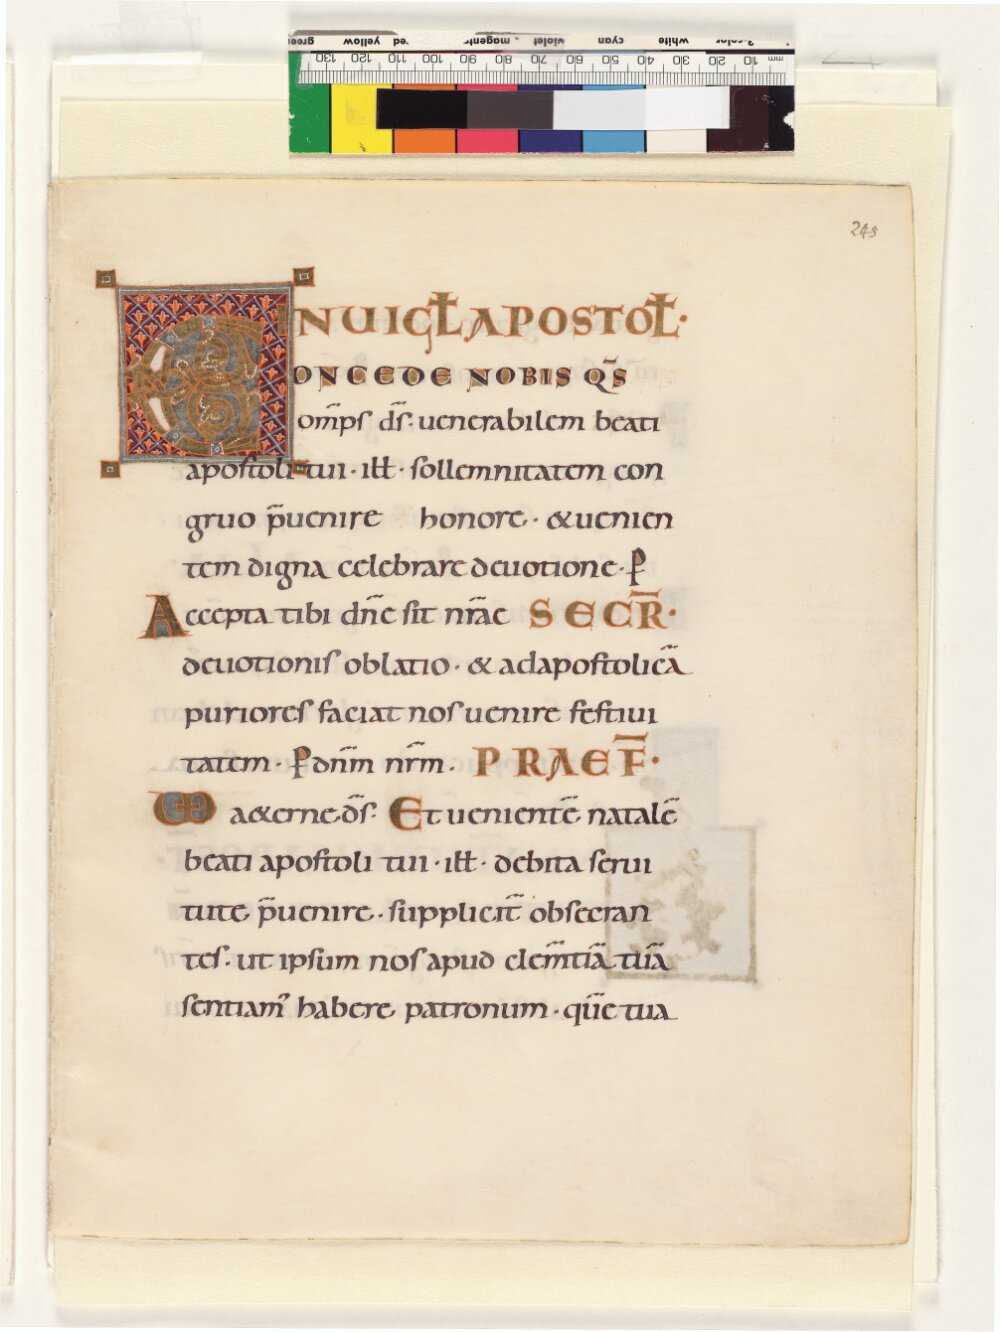 green yellow red magenta violet cyan white 3-color
mm 10 20 30 40 50 60 70 80 90 100 110 120 130
248
IN UIGL APOSTOL·
CONCEDE NOBIS QS̄
om̄ps d̄s· uenerabilem beati
apostoli tui · ill̄ · sollemnitatem con
gruo p̄uenire honore · & uenien
tem digna celebrare deuotione · P
Accepta tibi dn̄e sit nr̄ae SECR̄·
deuotionis oblatio · & ad apostolicā
puriores faciat nos uenire festiui
tatem · P dn̄m nr̄m · PRAEF̄·
UD a&erne d̄s· Et uenientē natalē
beati apostoli tui · ill̄ · debita serui
tute p̄uenire · supplicit̄ obsecran
tes · ut ipsum nos apud clem̄tiā tuā
sentiam' habere patronum · quē tua